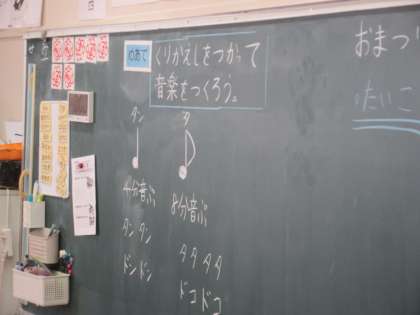 めあて
くりかえしをつかって
音楽をつくろう。
おまつ
たいこ
タン
タ
4分音ぷ
8分音ぷ
タン タン
タタタタ
ドン ドン
ドコドコ